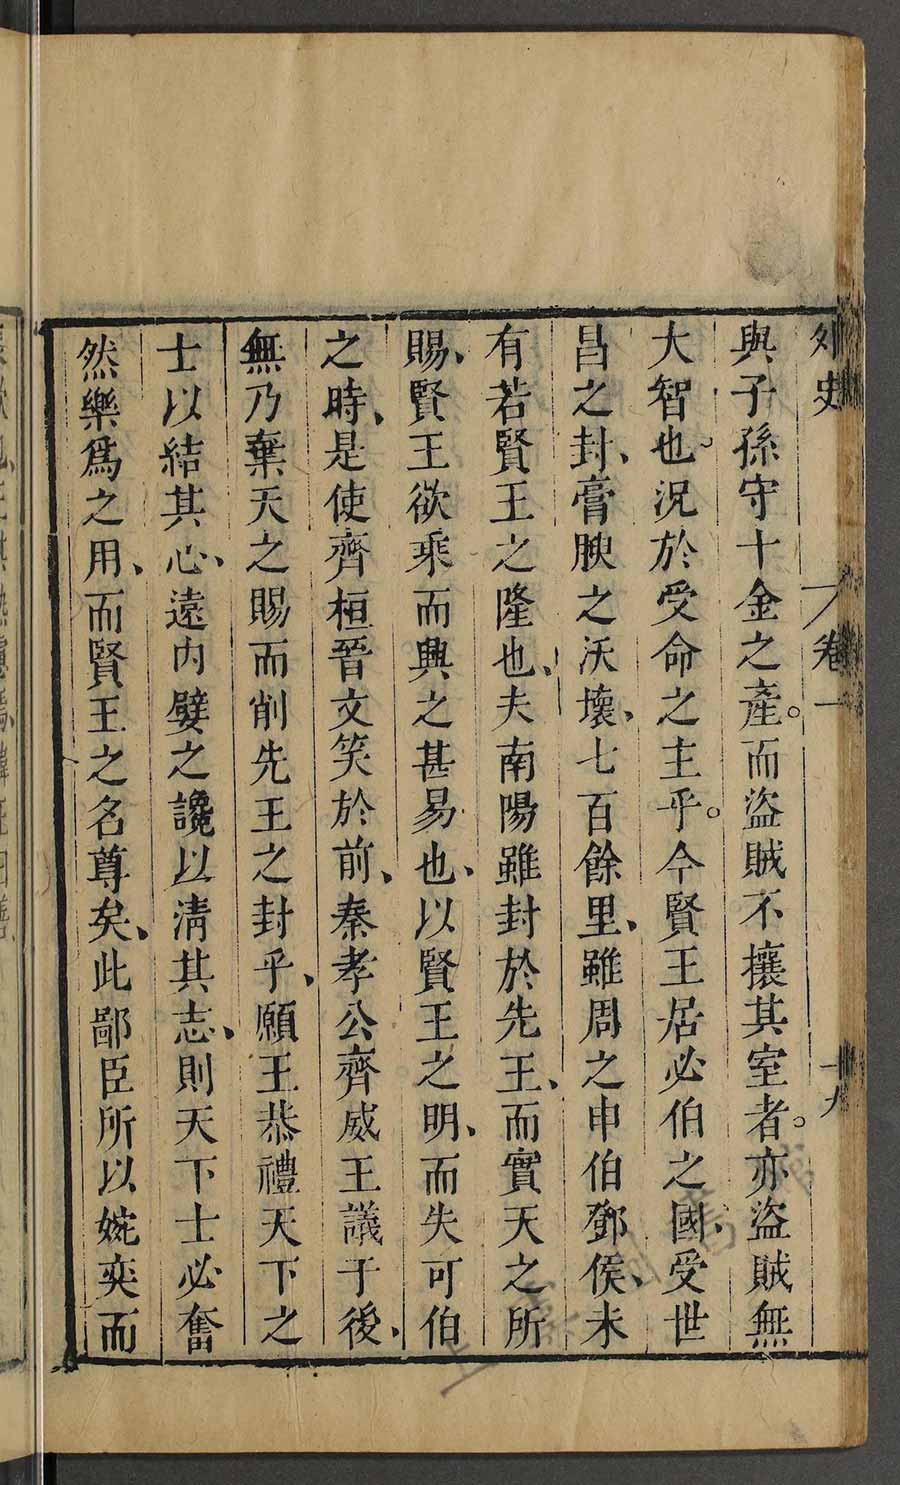 外史 卷一 十九
與子孫守十金之產。而盜賊不攘其室者。亦盜賊無
大智也。況於受命之主乎。今賢王居必伯之國、受世
昌之封、膏腴之沃壤、七百餘里、雖周之申伯鄧侯、未
有若賢王之隆也、夫南陽雖封於先王、而實天之所
賜、賢王欲乘而興之甚易也、以賢王之明、而失可伯
之時、是使齊桓晉文笑於前、秦孝公齊威王議于後、
無乃棄天之賜而削先王之封乎、願王恭禮天下之
士以結其心、遠內嬖之讒以清其志、則天下士必奮
然樂爲之用、而賢王之名尊矣、此鄙臣所以婉奕而